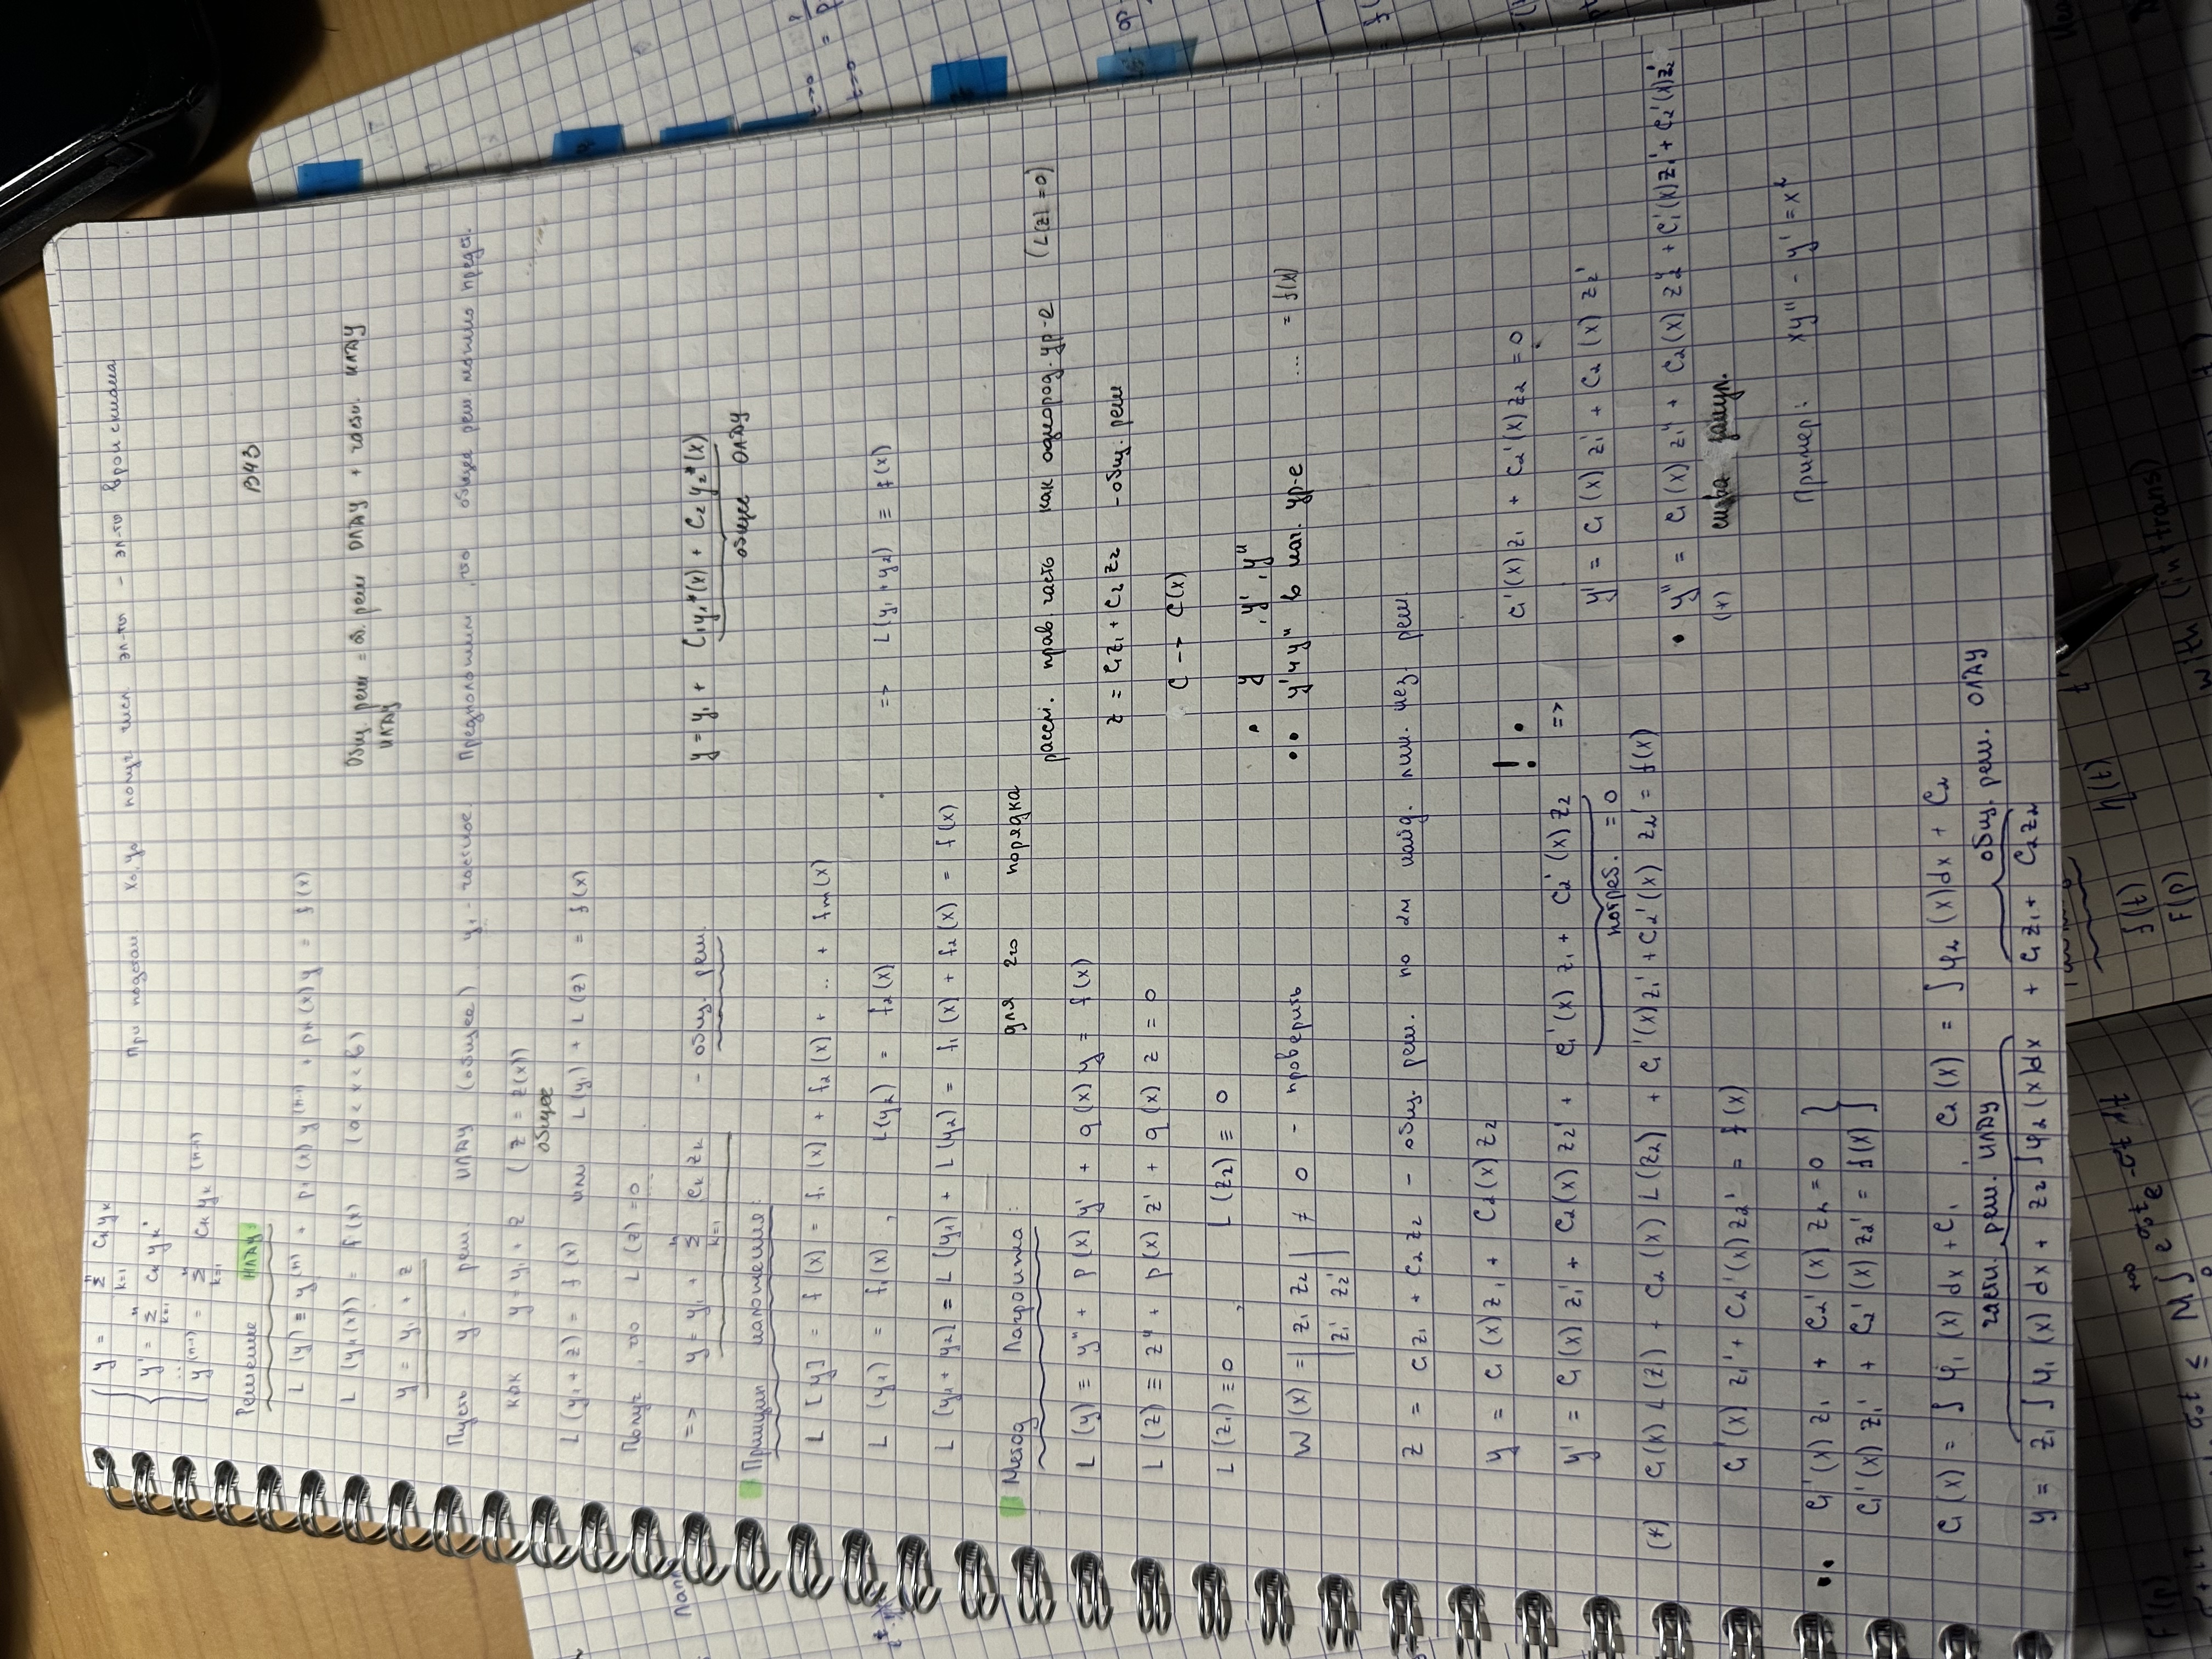 y = Σ_{k=1}^{n} Cₖ yₖ
y' = Σ_{k=1}^{n} Cₖ yₖ'
...
y⁽ⁿ⁻¹⁾ = Σ_{k=1}^{n} Cₖ yₖ⁽ⁿ⁻¹⁾
При подстан. x₀, y₀ получ числ. эл-ты - эл-ты вронскиана
Решение НЛДУ:
В43
L (y) ≡ y⁽ⁿ⁾ + p₁(x) y⁽ⁿ⁻¹⁾ + pₙ(x) y = f(x)
L (y₁(x)) = f(x) (a < x < b)
Общ. реш = о. реш ОЛДУ + частн. НЛДУ
НЛДУ
y = y₁ + z
Пусть y - реш. НЛДУ (общее) y₁ - частное. Предположим, что общее реш. можно предст.
как y = y₁ + z (z = z(x))
общее
L (y₁ + z) = f(x) или L(y₁) + L(z) = f(x)
Получ, что L(z) = 0
=> y = y₁ + Σ_{k=1}^{n} Cₖ zₖ - общ. реш.
y = y₁ + C₁y₁*(x) + C₂y₂*(x)
общее ОЛДУ
Принцип наложения:
L [y] = f(x) = f₁(x) + f₂(x) + .. + fm(x)
L (y₁) = f₁(x), L(y₂) = f₂(x) => L(y₁ + y₂) ≡ f(x)
L (y₁ + y₂) = L (y₁) + L (y₂) = f₁(x) + f₂(x) = f(x)
Метод Лагранжа: для 2го порядка
рассм. прав. часть как однород. ур-е (L(z) = 0)
L (y) ≡ y'' + p(x) y' + q(x) y = f(x)
z = C₁z₁ + C₂z₂ - общ. реш
L (z) ≡ z'' + p(x) z' + q(x) z = 0
C → C(x)
L(z₁) ≡ 0, L(z₂) ≡ 0
• y, y', y''
W(x) = | z₁ z₂ | ≠ 0 - проверить
| z₁' z₂' |
•• y' и y'' в нач. ур-е ... = f(x)
z = C₁z₁ + C₂z₂ - общ. реш. по 2м найд. лин. нез. реш.
y = C₁(x) z₁ + C₂(x) z₂
! • C₁'(x) z₁ + C₂'(x) z₂ = 0
y' = C₁(x) z₁' + C₂(x) z₂' + C₁'(x) z₁ + C₂'(x) z₂ =>
потреб. = 0
y' = C₁(x) z₁' + C₂(x) z₂'
(*) C₁(x) L(z₁) + C₂(x) L(z₂) + C₁'(x) z₁' + C₂'(x) z₂' = f(x)
• y'' = C₁(x) z₁'' + C₂(x) z₂'' + C₁'(x) z₁' + C₂'(x) z₂'
(*) занул.
C₁'(x) z₁' + C₂'(x) z₂' = f(x)
Пример: xy'' - y' = x²
•• C₁'(x) z₁ + C₂'(x) z₂ = 0
C₁'(x) z₁' + C₂'(x) z₂' = f(x)
C₁(x) = ∫ φ₁(x) dx + C₁, C₂(x) = ∫ φ₂(x) dx + C₂
частн. реш. НЛДУ общ. реш. ОЛДУ
y = z₁ ∫ φ₁(x) dx + z₂ ∫ φ₂(x) dx + C₁z₁ + C₂z₂
f(t) η(t)
F(p)
F'(p)
with (inttrans)